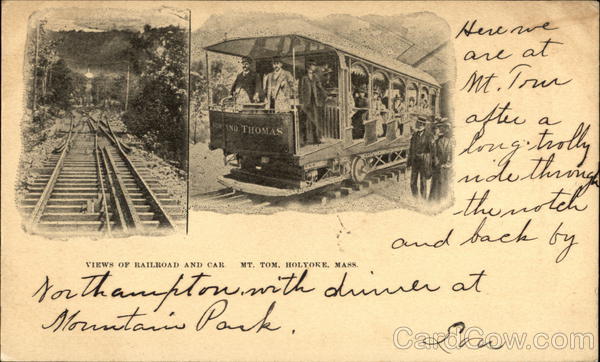 Here we
are at
Mt. Tom
after a
long trolly
ride through
the notch
and back by
Northampton, with dinner at
Mountain Park.
AND THOMAS
VIEWS OF RAILROAD AND CAR MT. TOM, HOLYOKE, MASS.
CardCow.com